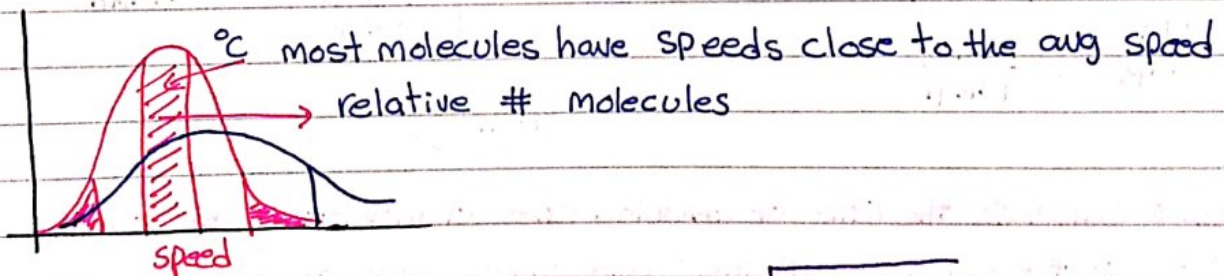 °C most molecules have speeds close to the avg speed
relative # molecules
speed